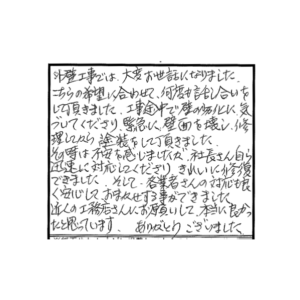 外壁工事では、大変お世話になりました。
こちらの希望に合わせて、何度も話し合いを
して頂きました。工事途中で壁の劣化に気
づいてくださり、緊急に、壁面を壊し、修
理してから塗装をして頂きました。
その時は不安を感じましたが、社長さん自ら
迅速に対応してくださり きれいに修復
できました。そして、各業者さんの対応も良
く安心しておまかせする事ができました。
近くの工務店さんにお願いして、本当に良かっ
たと思っています。 ありがとうございました